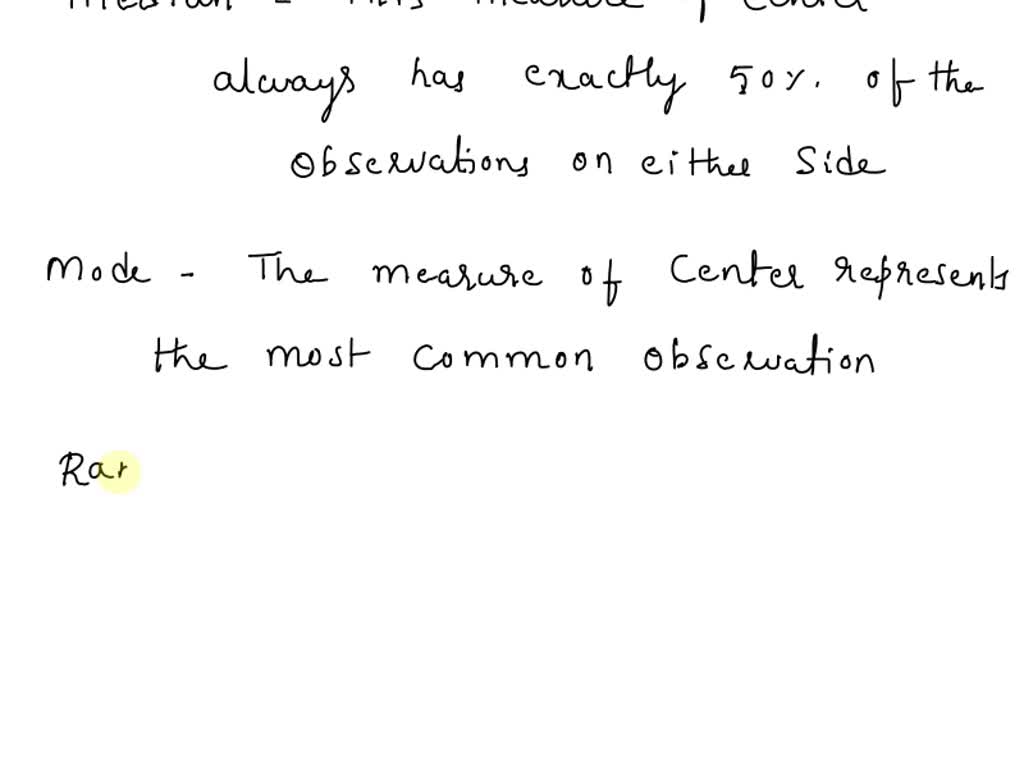 Median - This measure of Center
always has exactly 50%. of the
Observations on either Side
Mode - The measure of Center represents
the most Common Observation
Ran